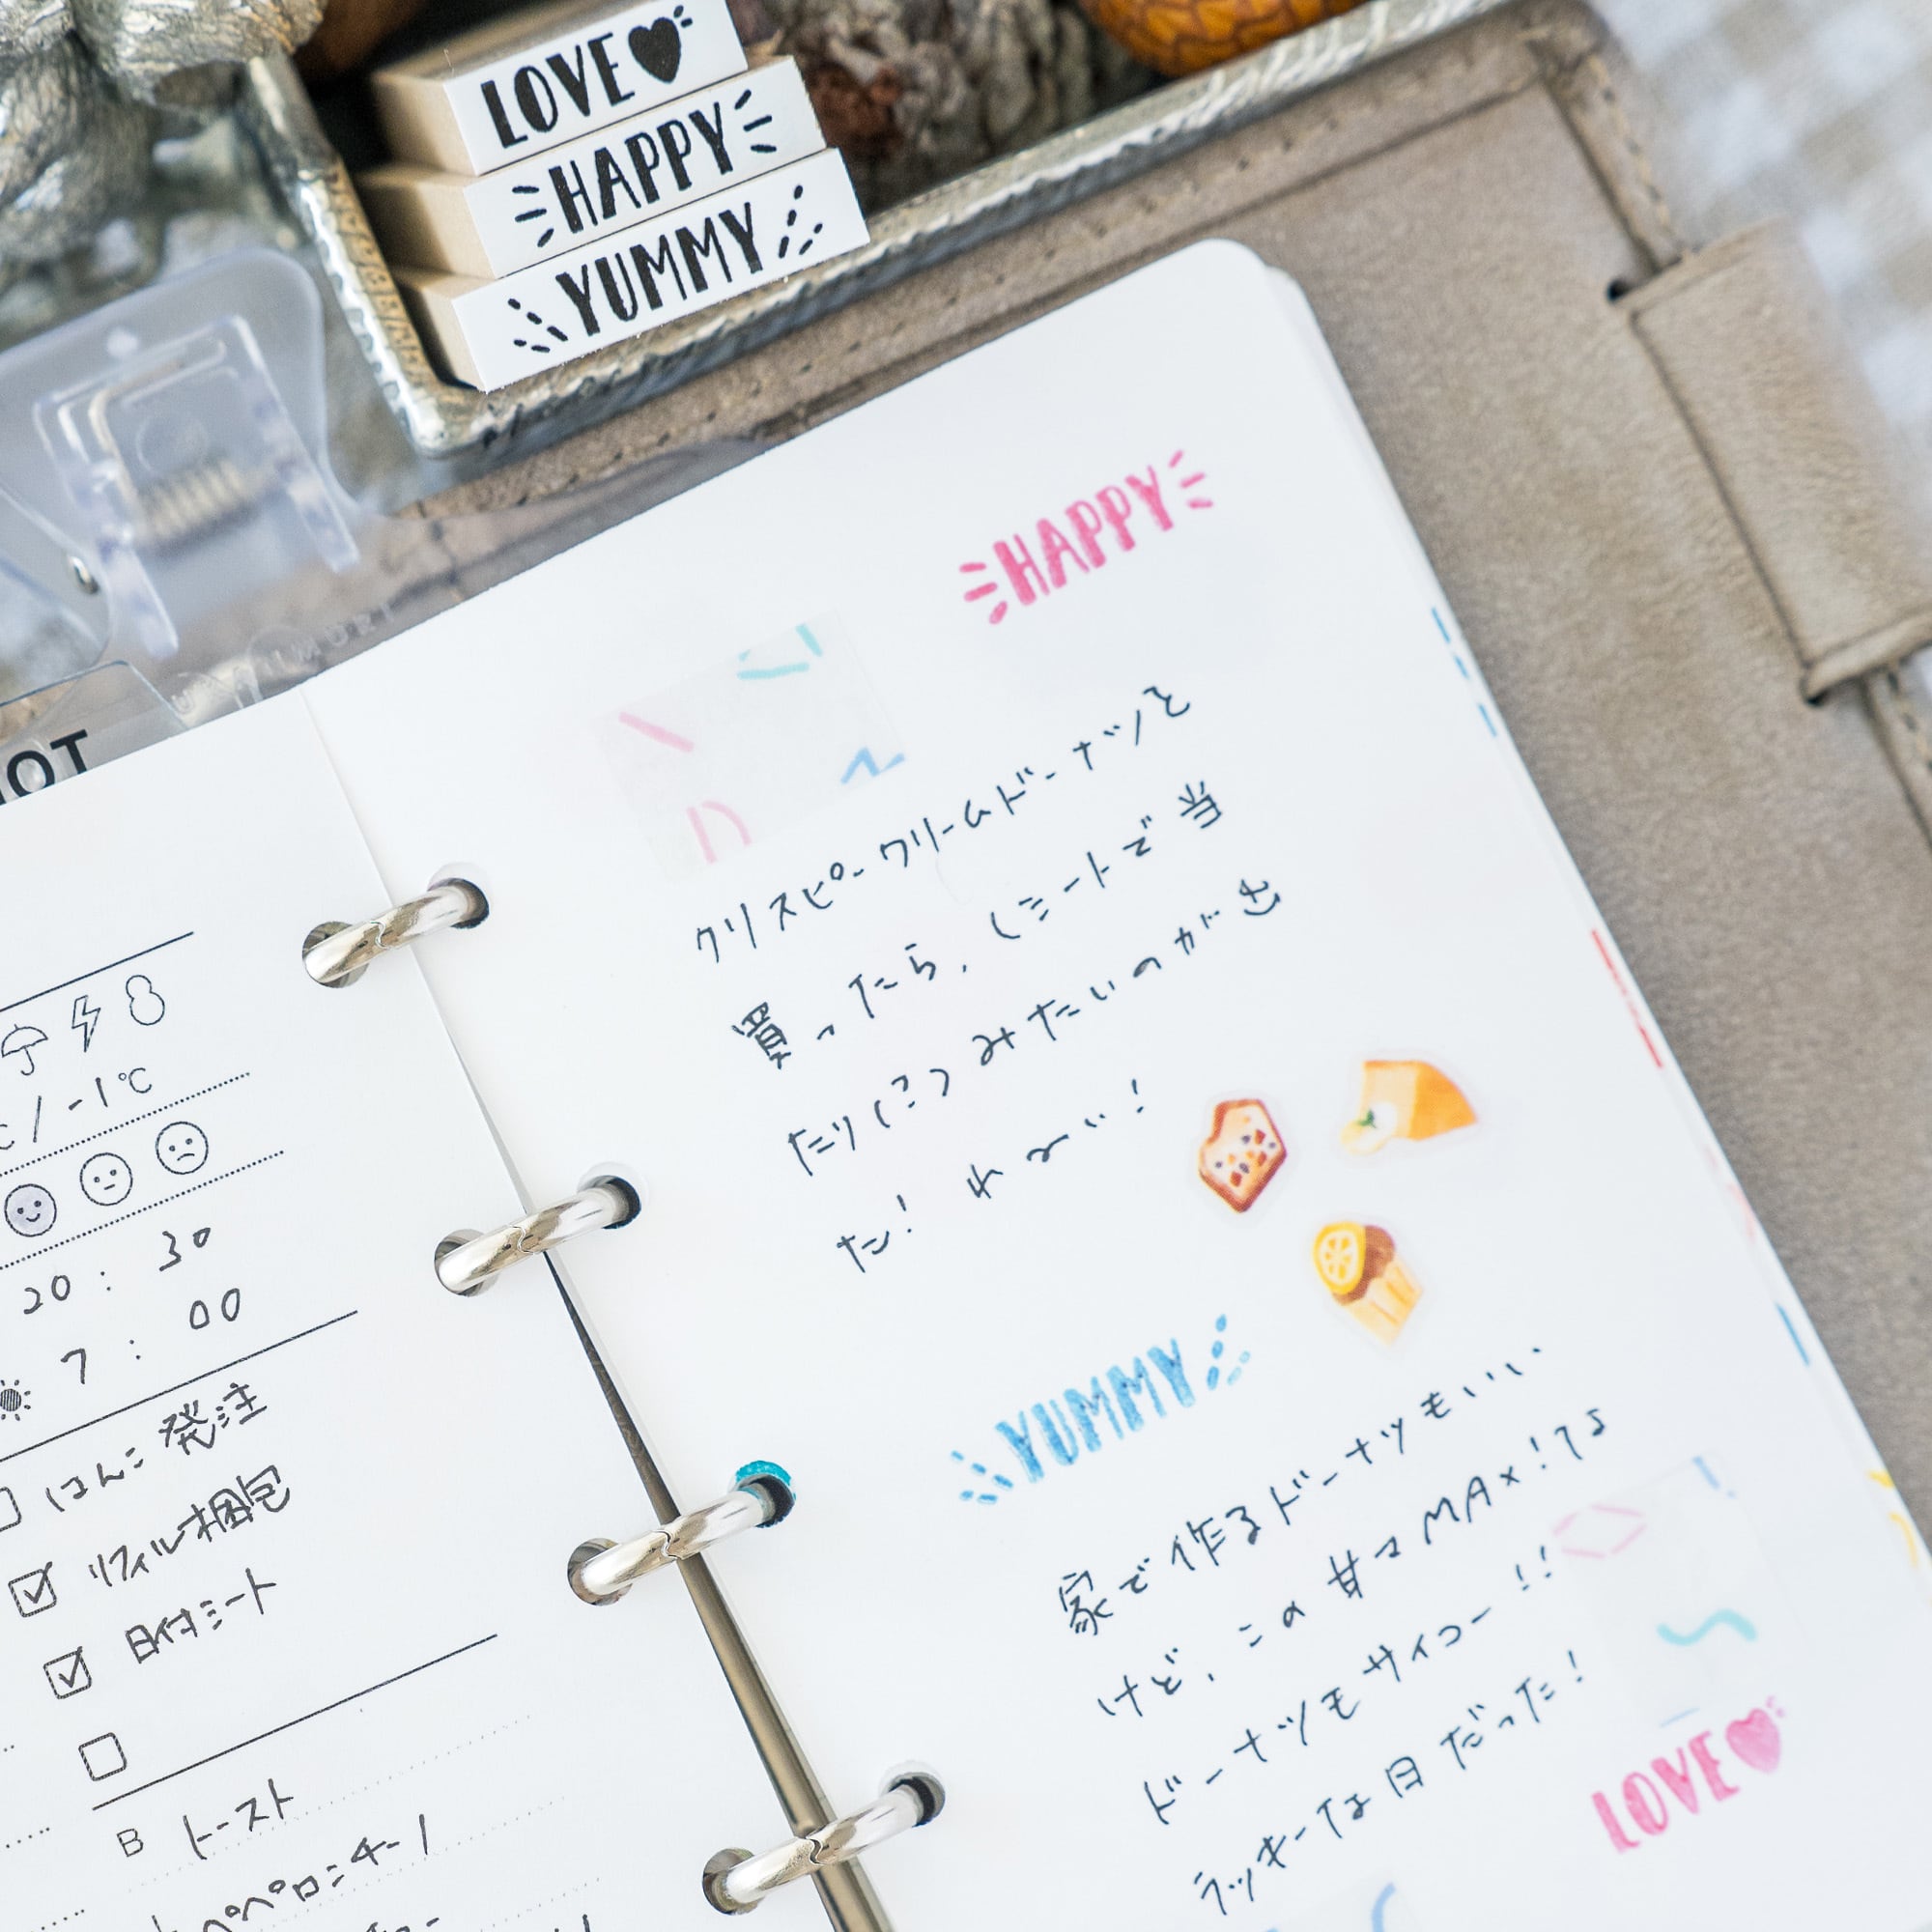 LOVE
HAPPY
YUMMY
/ -1℃
20 : 30
7 : 00
はんこ発注
リフィル梱包
日付シート
B トースト
ペペロンチーノ
HAPPY
クリスピークリームドーナツを
買ったら、レシートで当
たりくじみたいのが出
た! わーい!
YUMMY
家で作るドーナツもいい
けど、この甘々MAX!なる
ドーナツもサイコー!!
ラッキーな日だった!
LOVE